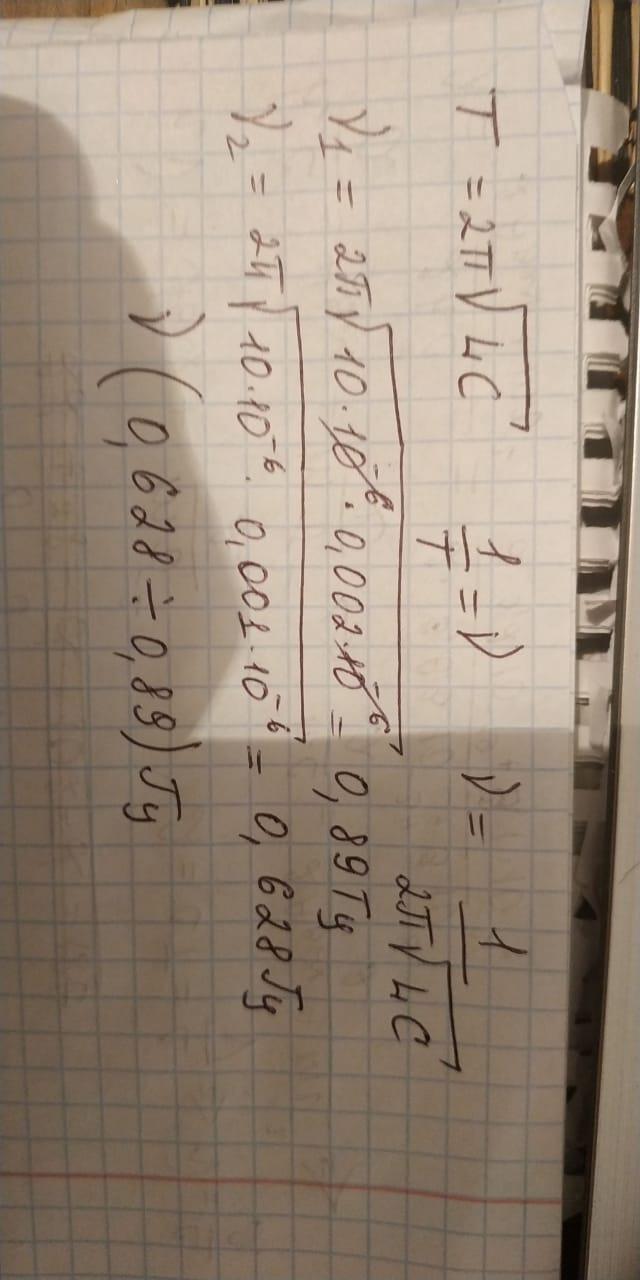 T = 2π√LC 1/T = ν ν = 1/2π√LC
ν1 = 2π√10·10⁻⁶·0,002·10⁻⁶ = 0,89Гц
ν2 = 2π√10·10⁻⁶·0,001·10⁻⁶ = 0,628Гц
ν (0,628÷0,89)Гц